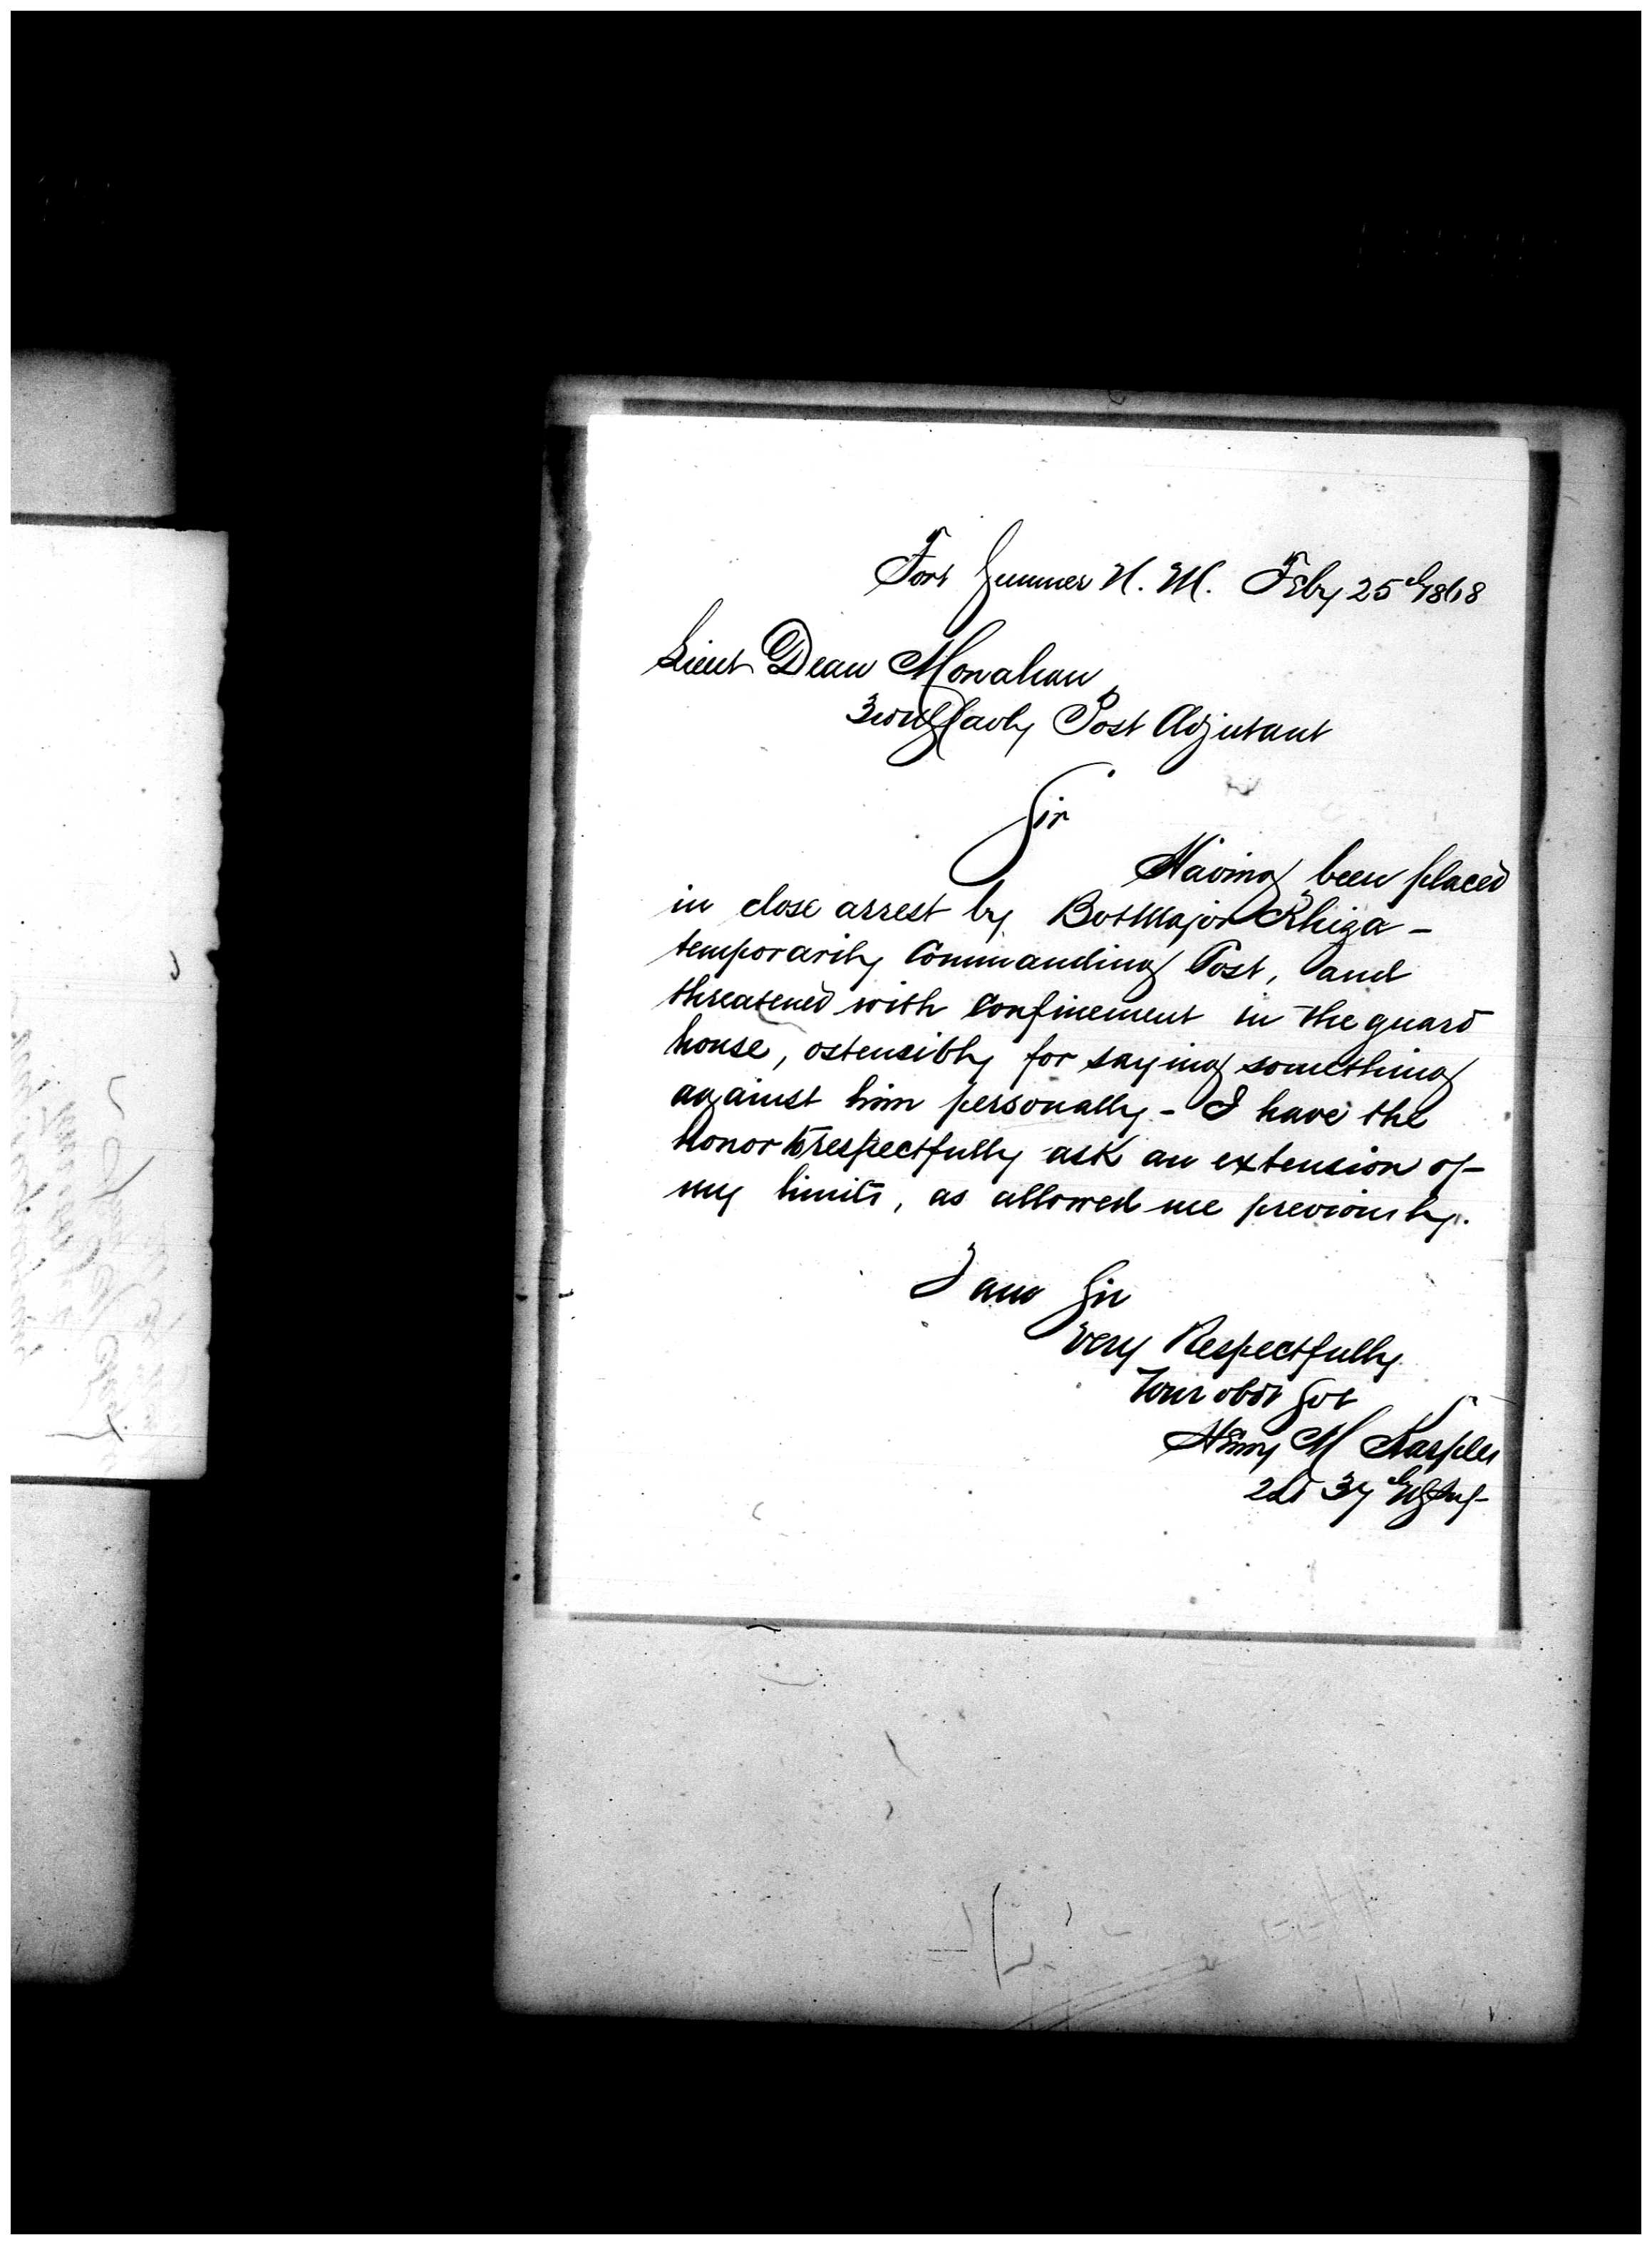 Fort Sumner N. M. Feby 25th 1868
Lieut Dean Monahan
3rd US Cavly Post Adjutant
Sir
Having been placed
in close arrest by Bvt Major Khiga -
temporarily Commanding Post, and
threatened with Confinement in the guard
house, ostensibly for saying something
against him personally - I have the
honor to respectfully ask an extension of
my limits, as allowed me previously.
I am Sir
Very Respectfully
Your obdt Svt
Henry M Karples
2 Lt 37th US Inf